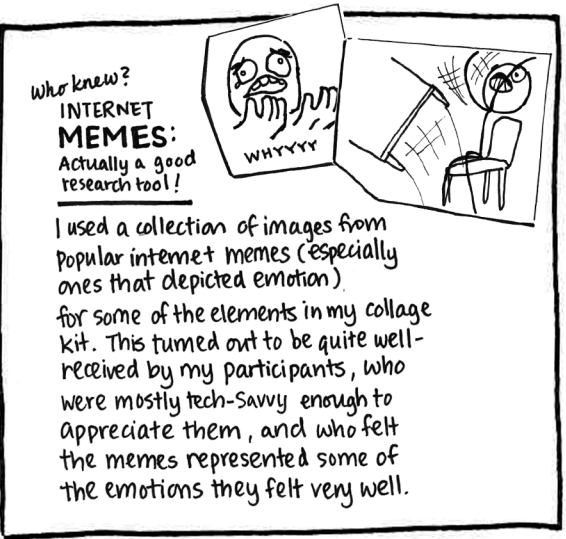 who knew?
INTERNET
MEMES:
Actually a good
research tool!
WHYYYY
I used a collection of images from
popular internet memes (especially
ones that depicted emotion)
for some of the elements in my collage
kit. This turned out to be quite well-
received by my participants, who
were mostly tech-savvy enough to
appreciate them, and who felt
the memes represented some of
the emotions they felt very well.